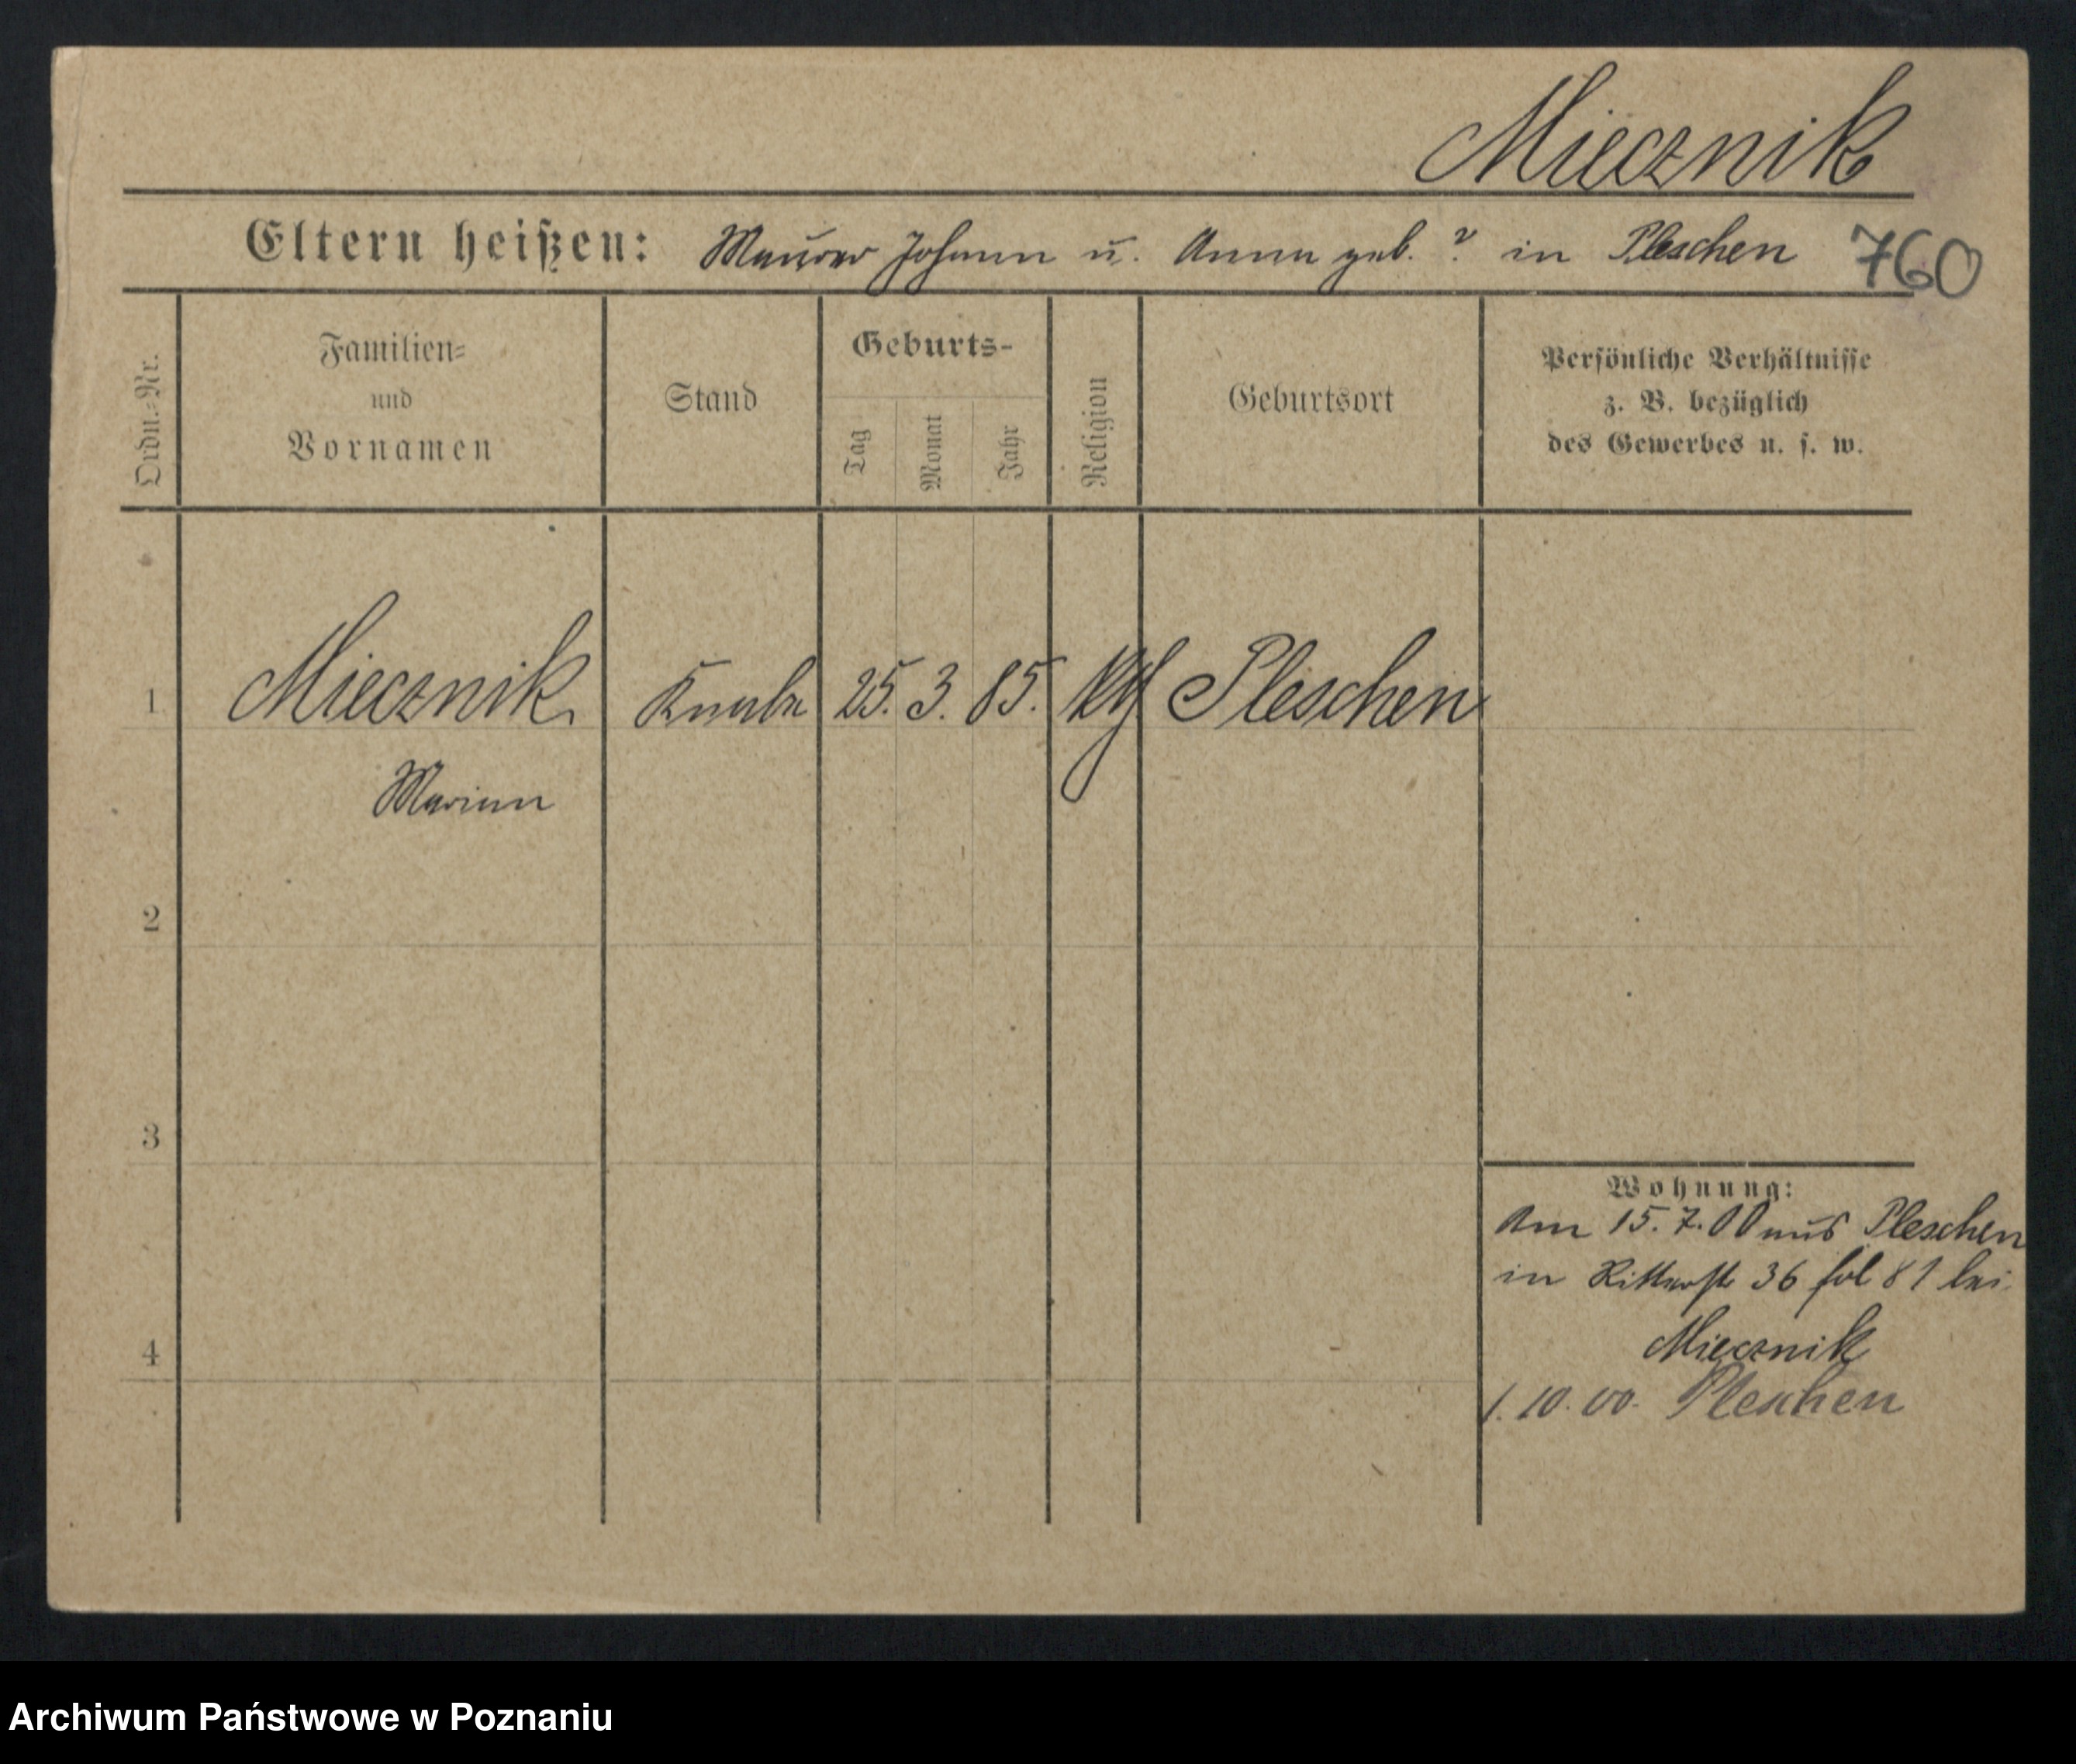 Miecznik
Eltern heißen: Maurer Johann u. Anna geb. ? in Pleschen 760
Ordn.-Nr.
Familien-
und
Vornamen
Stand
Geburts-
Tag
Monat
Jahr
Religion
Geburtsort
Persönliche Verhältnisse
z. B. bezüglich
des Gewerbes u. s. w.
1 Miecznik Knabe 25. 3. 85. kth Pleschen
Marian
2
3
4
Wohnung:
Am 15. 7. 00 aus Pleschen
in Ritterstr 36 fol 81 bei
Miecznik
1. 10. 00. Pleschen
Archiwum Państwowe w Poznaniu